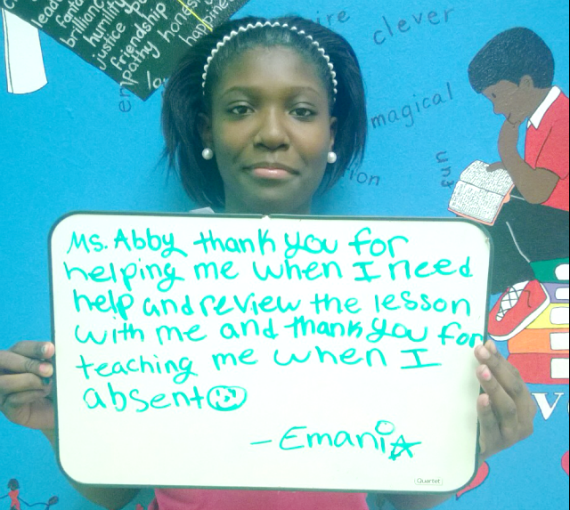 brilliance
humility
justice
friendship
honesty
happiness
clever
magical
fun
Ms. Abby thank you for
helping me when I need
help and review the lesson
with me and thank you for
teaching me when I
absent
- Emani
Quartet